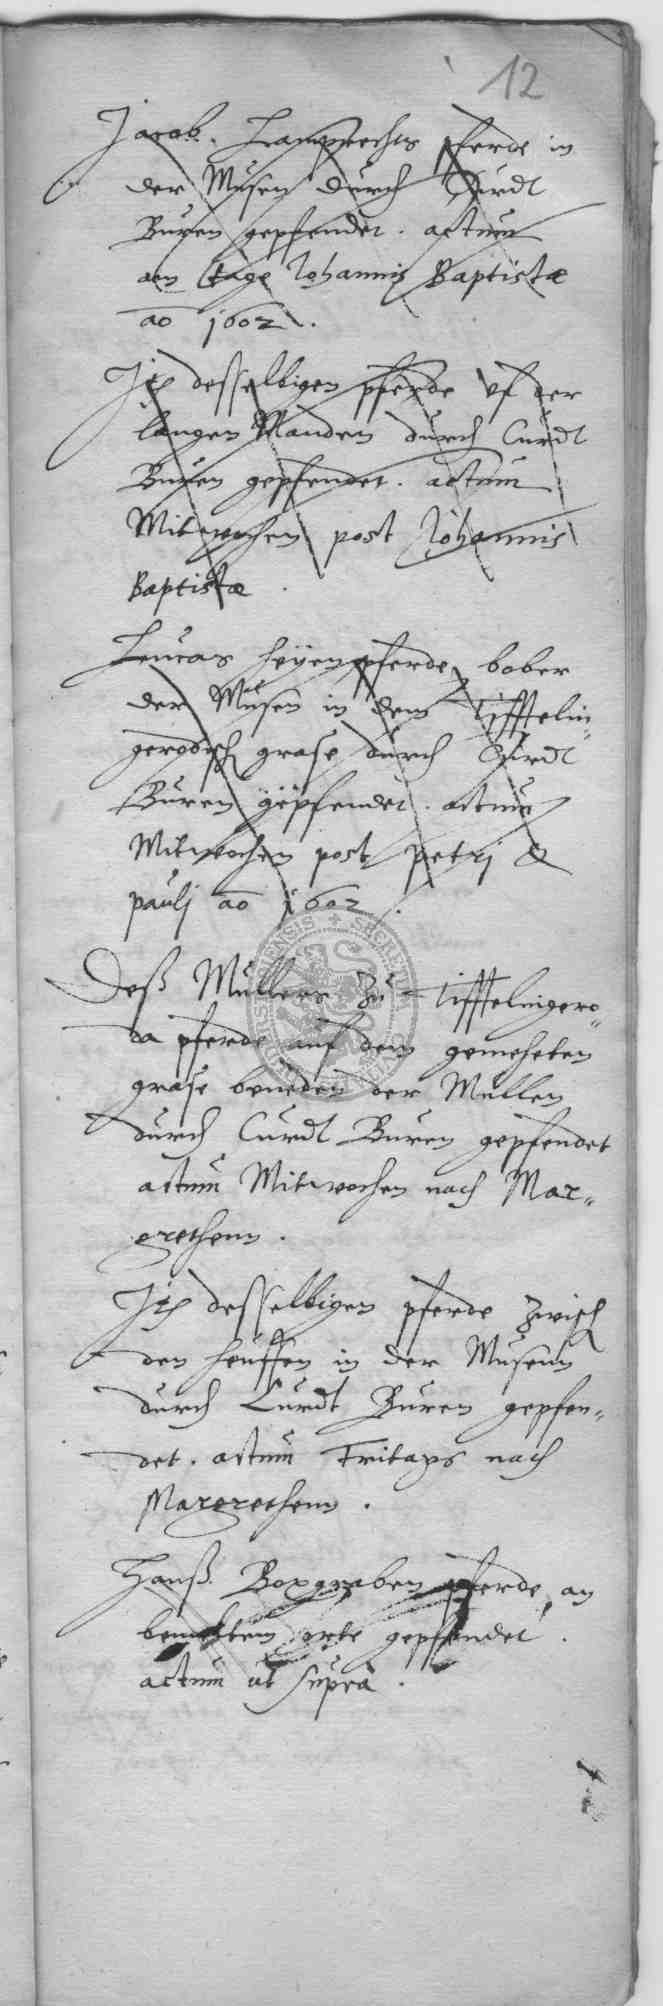 12
Jacob Lamprechts pferde in
der Musen durch Curdt
Buren gepfendet. actum
am tage Johannis Baptistæ
ao 1602.
Jtem desselbigen pferde vf der
langen Wanden durch Curdt
Buren gepfendet. actum
Mitwochen post Johannis
Baptistæ.
Lucas heyen pferde, bober
der Musen in dem Tifftelin=
gerodisch grase durch Curdt
Buren gepfendet. actum
Mitwochen post petrj &
paulj ao 1602.
Deß Mullers zu Tifftelingero=
da pferde auf dem gemeheten
grase beneden der Mullen
durch Curdt Buren gepfendet
actum Mitwochen nach Mar=
grethenn.
Jtem desselbigen pferde zwisch
den heuffen in der Musenn
durch Curdt Buren gepfen=
det. actum Fritags nach
Margrethenn.
Hanß Boxgraben pferde, an
bemeltem orte gepfendet.
actum ut supra.